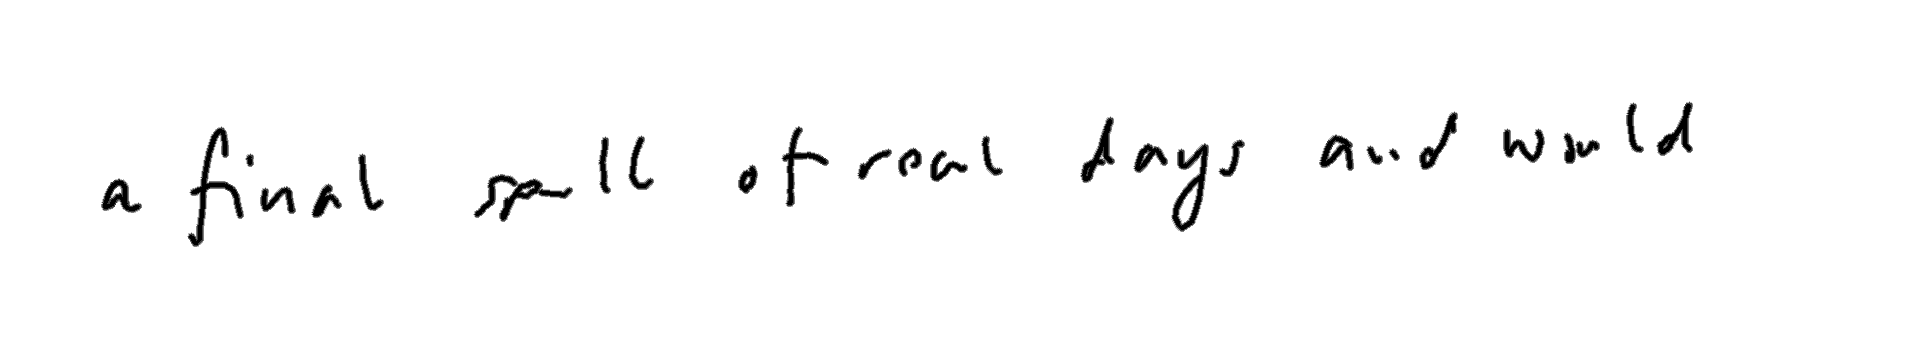 a final spell of real days and would